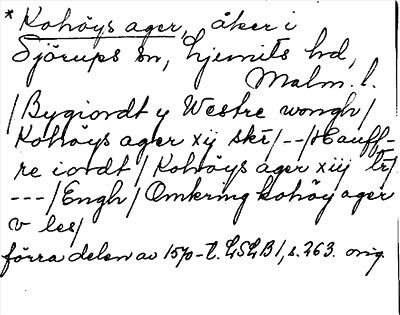 * Kohöys ager, åker i
Sjörups sn, Ljunits hd,
Malm. l.
/Bygiordt y Westre wongh/
Kohöys ager xij skr/--/Hauff-
re iordt/Kohöys ager xiij lr/
---/Engh/Omkring kohöy ager
v les/
förra delen av 1570-t. LSLB1, s. 263. orig.